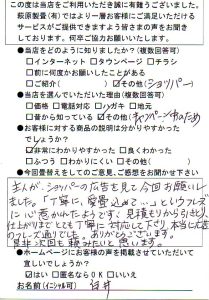 この度は当店をご利用いただき誠に有難うございました。
萩原製畳(有)ではより一層お客様にご満足いただける
サービスがご提供できますよう皆さまの声をお聞き
しております。何卒ご協力お願いいたします。
●当店をどのように知りましたか?(複数回答可)
□インターネット □タウンページ □チラシ
□前に何度かお願いしたことがある
□ご紹介( )☑その他(ショッパー)
●当店を選んでいただいた理由(複数回答可)
□価格 □電話対応 □ハガキ □地元
□昔から知っている ☑その他(キャンペーン中のため)
●お客様に対する商品の説明は分かりやすかった
でしょうか?
☑非常にわかりやすかった □良くわかった
□ふつう □わかりにくい □その他( )
●今回畳替えをしてのご意見、ご感想をお聞かせ下さい
主人が、ショッパーの広告を見て今回お願いし
ました。「丁寧に、
というフレーズ
に心惹かれたようです。見積りから引きとり
仕上がりまでとても丁寧に対応して下さり本当に広告
のフレーズ通りでした。ありがとうございます。
是非次回も頼みたいと思います。
●ホームページへお客様の声を掲載させていただいて
宜しいでしょうか?
☑はい □匿名ならOK □いいえ
お名前(イニシャル可)